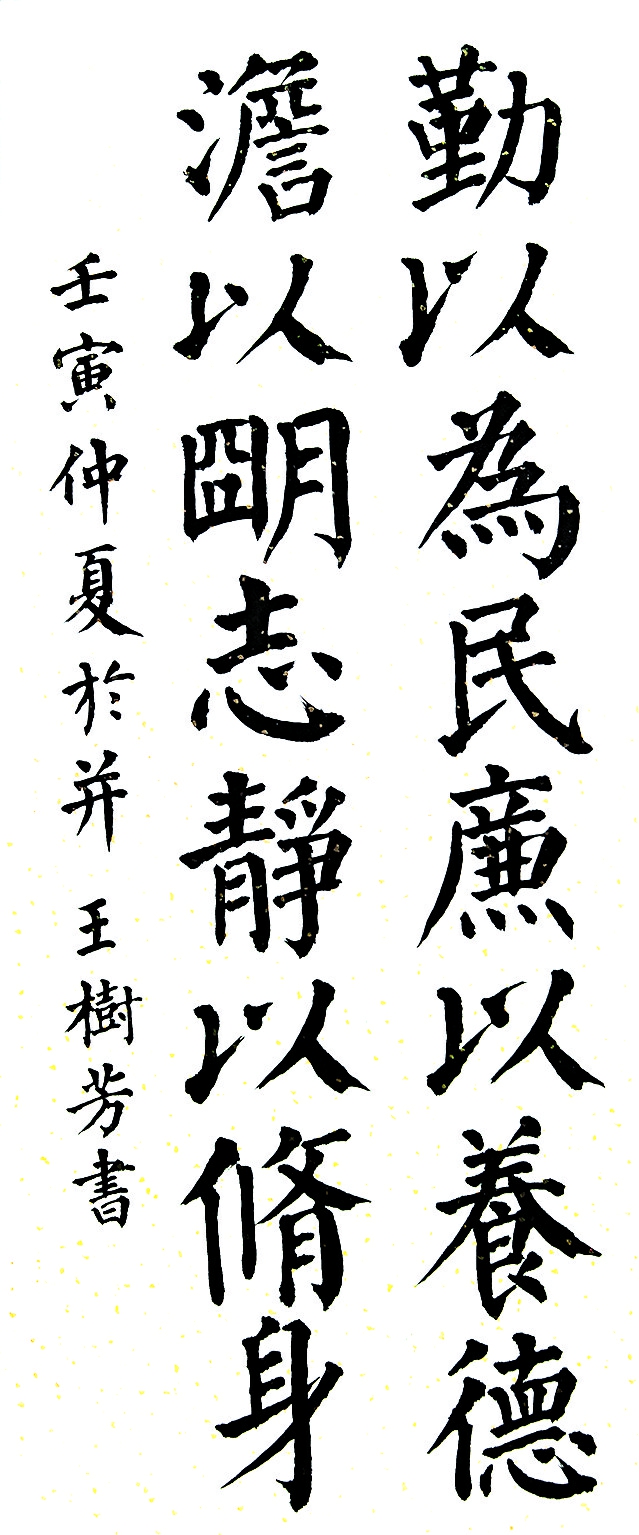 勤以為民廉以養德
澹以朙志靜以脩身
壬寅仲夏於并 王樹芳書